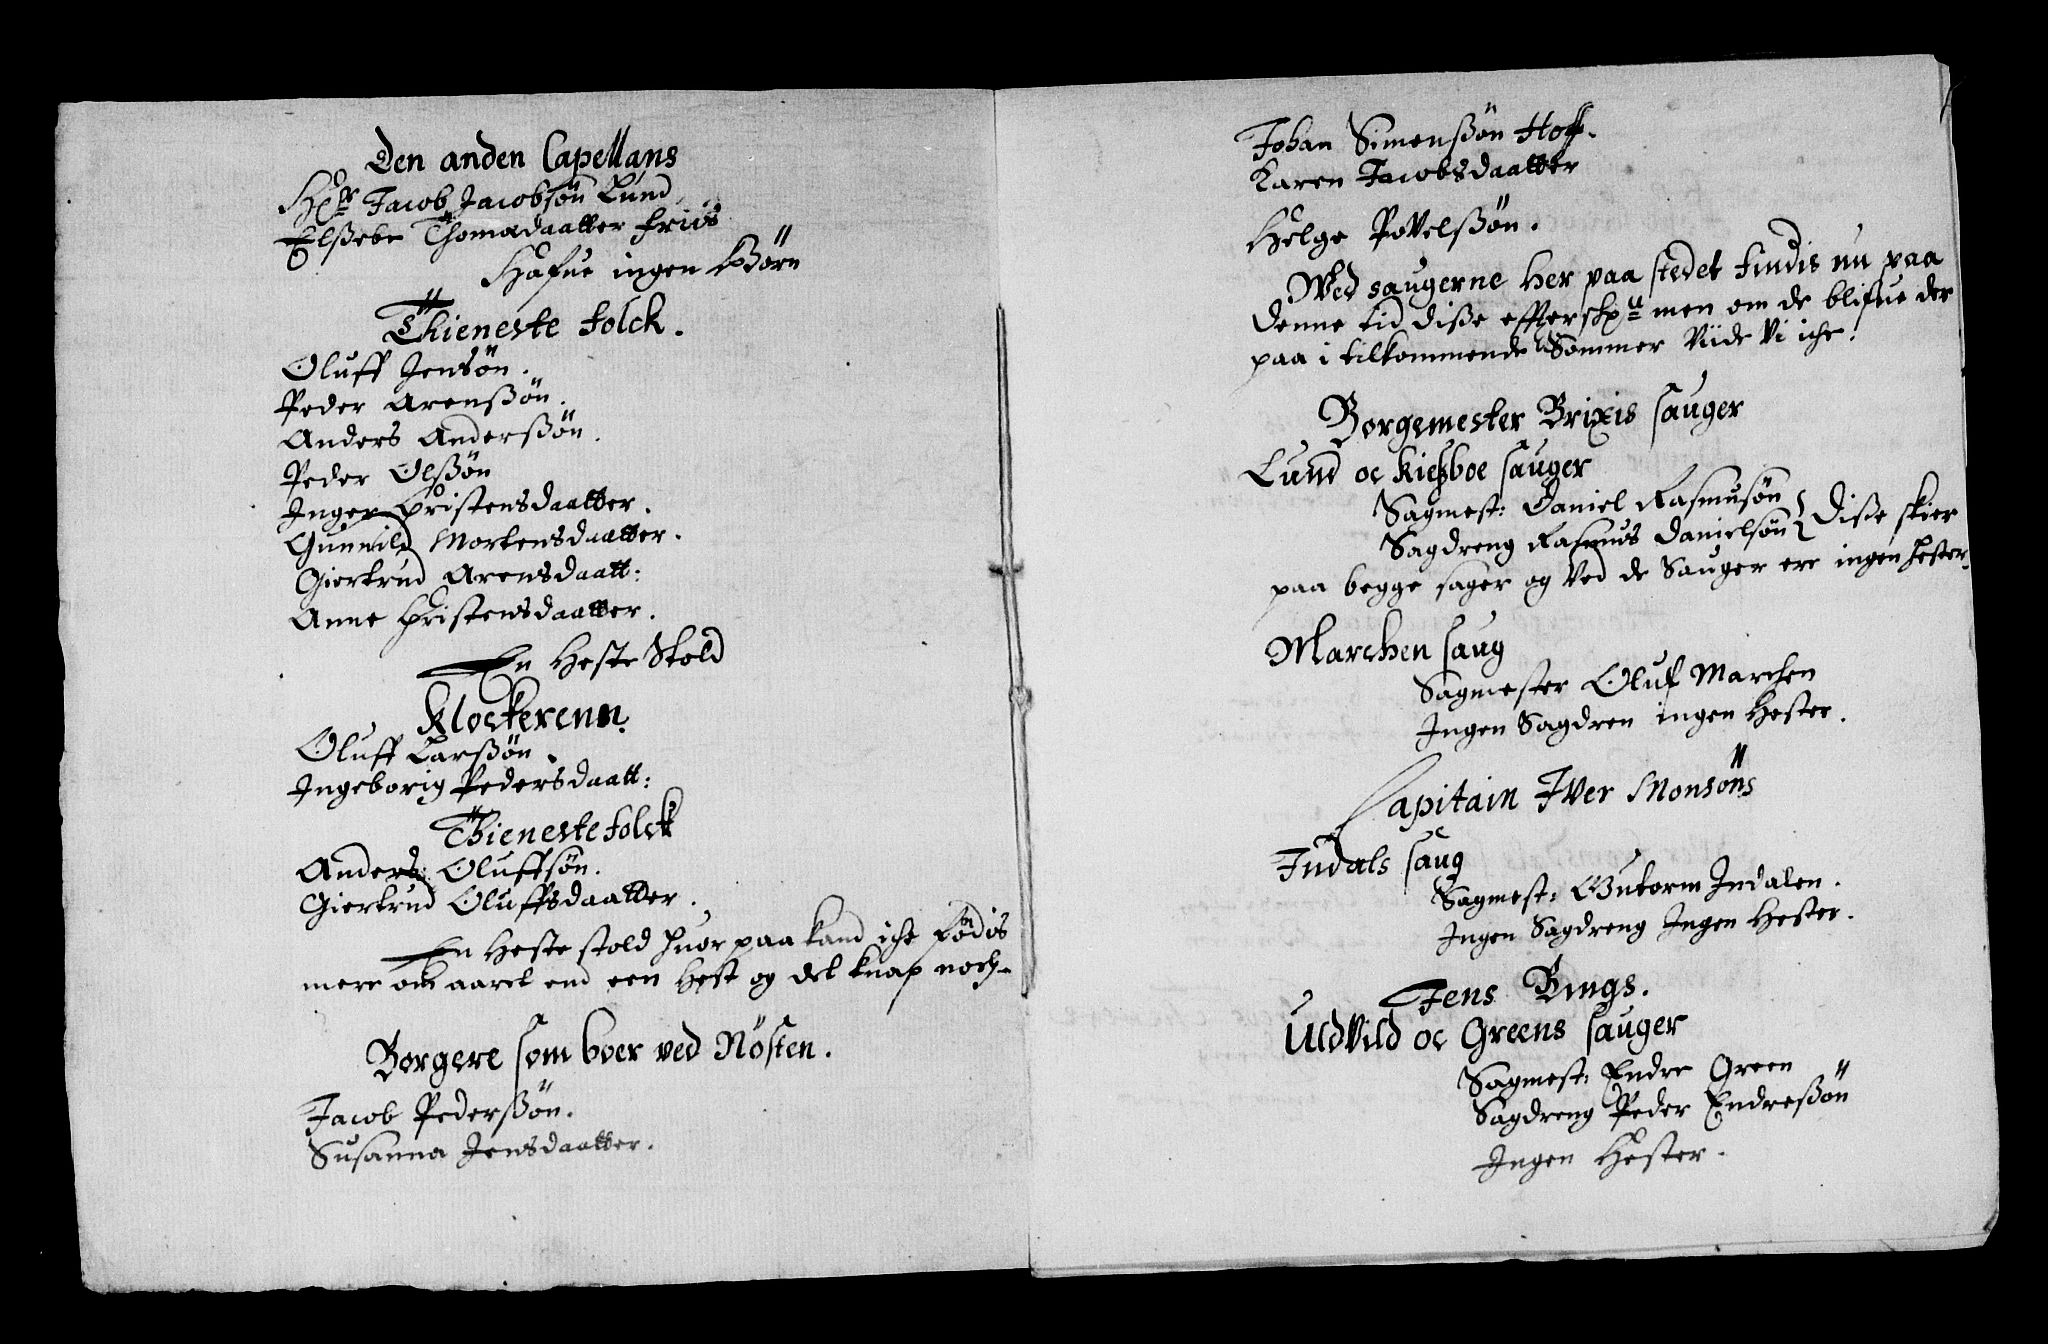 Den anden Capellans
Hr Jacob Jacobsön Lund
Elßebe Thomadaatter Friis
Hafue ingen Börn
Thieneste folck.
Oluff Jensön.
Peder Arenßön.
Anders Anderßön.
Peder Olßön
Inger Christensdaatter.
Gunnild Mortensdaatter.
Giertrud Arensdaatt:
Anne Christensdaatter.
En Heste Stold
Klockerenn.
Oluff Larßön.
Ingeborig Pedersdaatt:
Thieneste folck
Anders Oluffsön.
Giertrud Oluffsdaatter.
En Heste stold huor paa kand iche födis
mere om aaret end een Hest og det knap noch.
Borgere som boer ved Nösten.
Jacob Pederßön.
Susanna Jensdaatter.
Johan Simenßön Hoff.
Karen Jacobsdaatter
Helge Povelßön.
Wed saugerne her paa stedet findis nu paa
denne tid diße effterschr: men om de blifue der
paa i tilkommende Sommer Viide Vi iche.
Borgemester Brixis sauger
Lund oc Kießboe sauger
Sagmest: Daniel Rasmusön
Sagdreng Rasmus Danielsön } Diße skier
paa begge sager og Ved de Sauger ere ingen hester.
Marchen saug
Sagmester Oluf Marchen
Ingen Sagdren ingen Hester.
Capitain Iver Monsöns
Indals saug
Sagmest: Gutorm Indalen.
Ingen Sagdreng Ingen Hester.
Jens Bings.
Uldvild oc Greens sauger
Sagmest: Endre Green
Sagdreng Peder Endreßön
Ingen Hester.